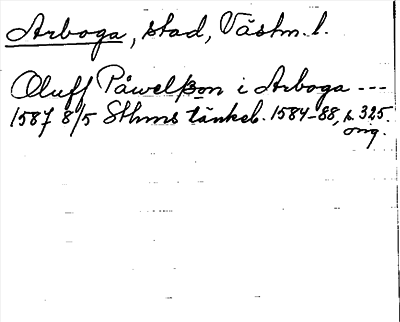 Arboga, stad, Västm. l.
Oluff Påwelßon i Arboga ---
1587 8/5 Sthms tänkeb. 1584-88, s. 325.
orig.